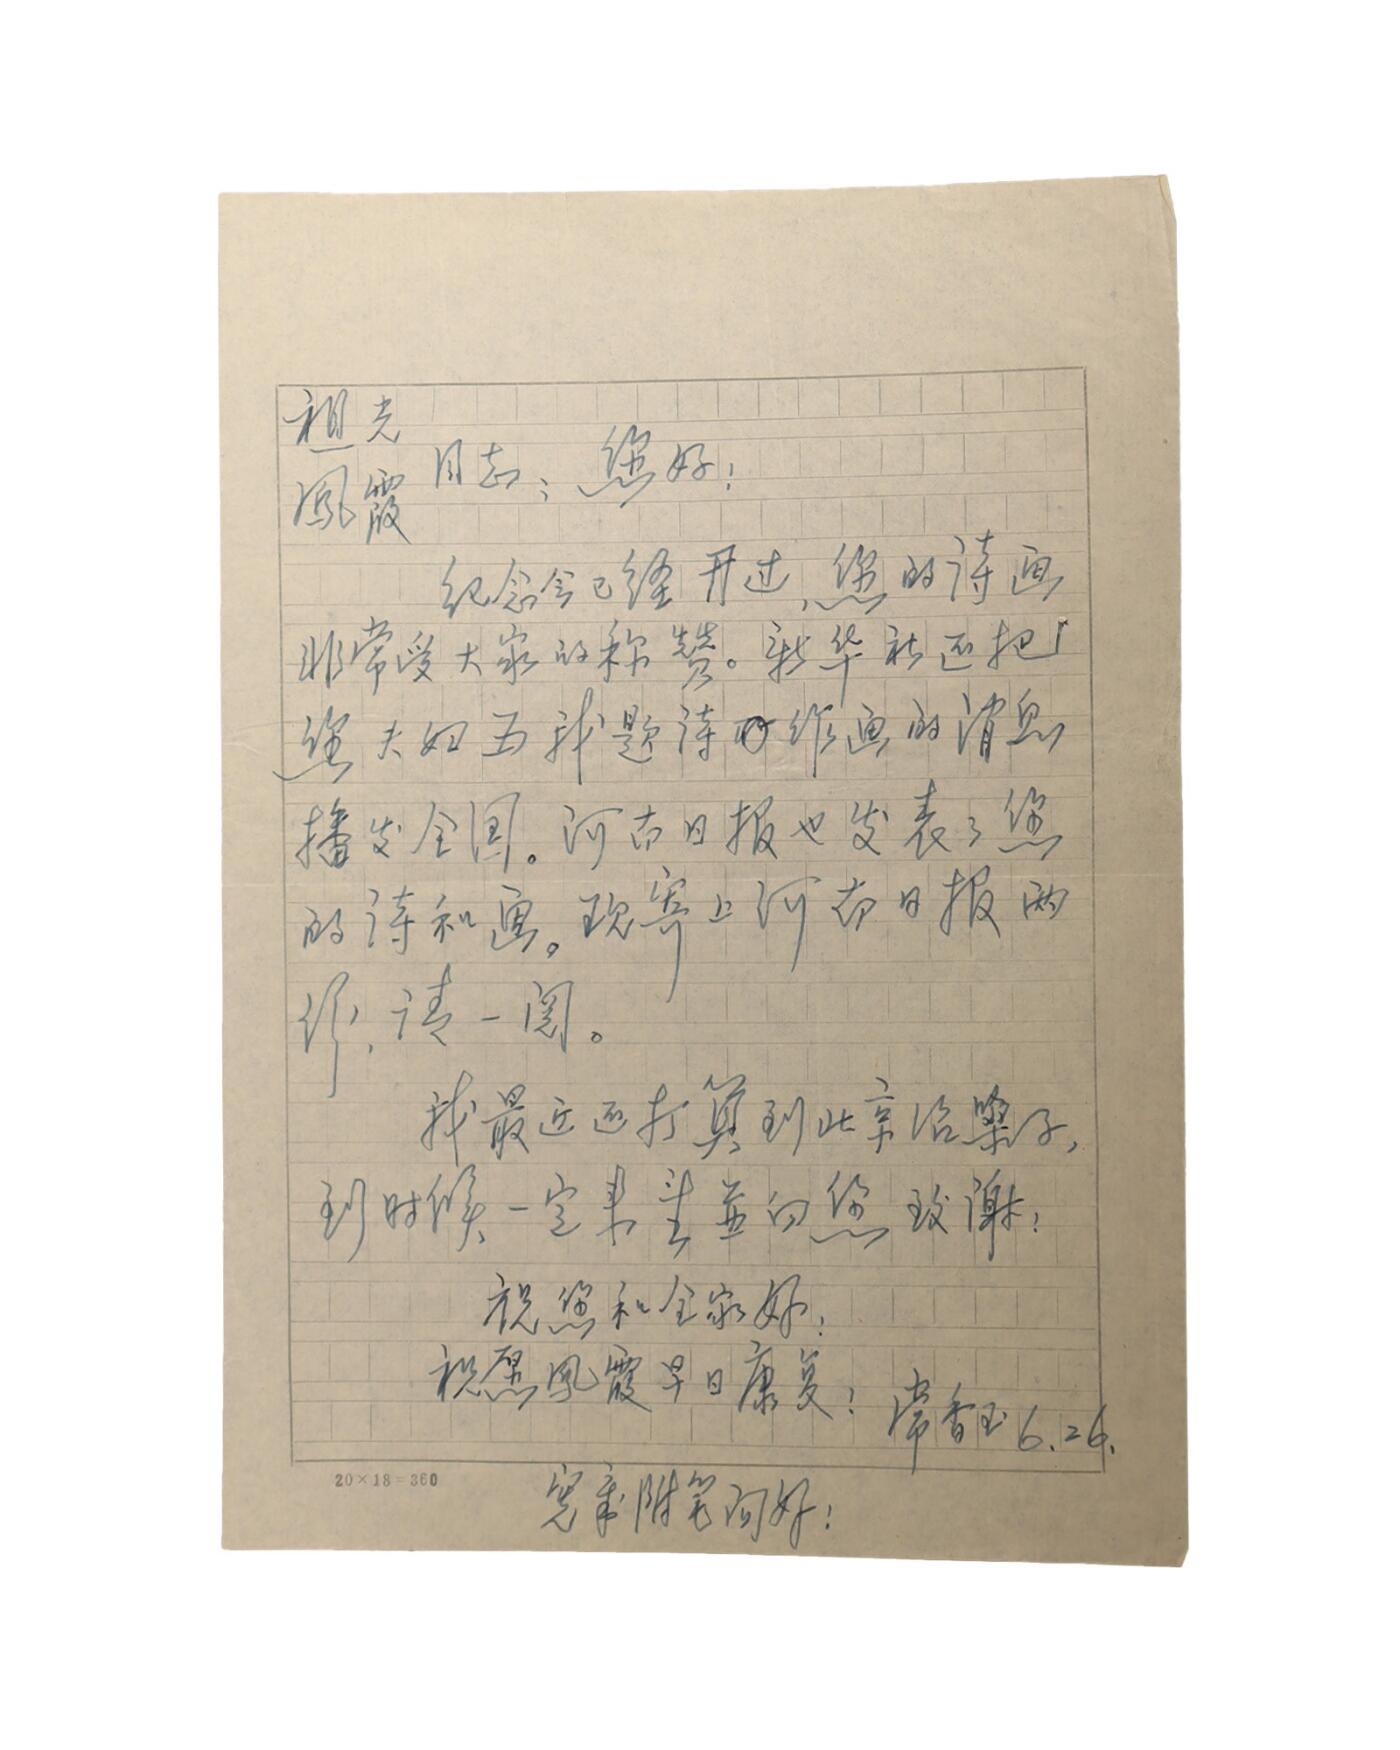 祖光
凤霞 同志: 您好!
纪念会已经开过,您的诗画
非常受大家的称赞。新华社还把
您夫妇为我题诗作画的消息
播发全国。河南日报也发表了您
的诗和画。现寄上河南日报两
份,请一阅。
我最近还打算到北京治嗓子,
到时候一定来看並向您致谢!
祝您和全家好!
祝愿凤霞早日康复!
常香玉 6.26.
20×18=360
宪章附笔问好!